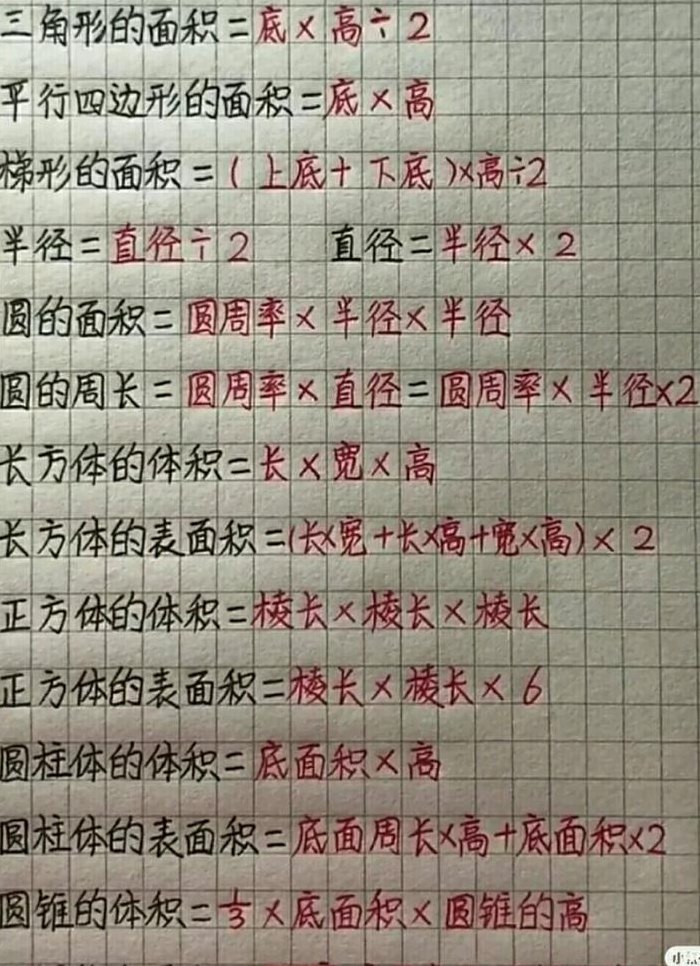 三角形的面积=底×高÷2
平行四边形的面积=底×高
梯形的面积=(上底+下底)×高÷2
半径=直径÷2 直径=半径×2
圆的面积=圆周率×半径×半径
圆的周长=圆周率×直径=圆周率×半径×2
长方体的体积=长×宽×高
长方体的表面积=(长×宽+长×高+宽×高)×2
正方体的体积=棱长×棱长×棱长
正方体的表面积=棱长×棱长×6
圆柱体的体积=底面积×高
圆柱体的表面积=底面周长×高+底面积×2
圆锥的体积=1/3×底面积×圆锥的高
小